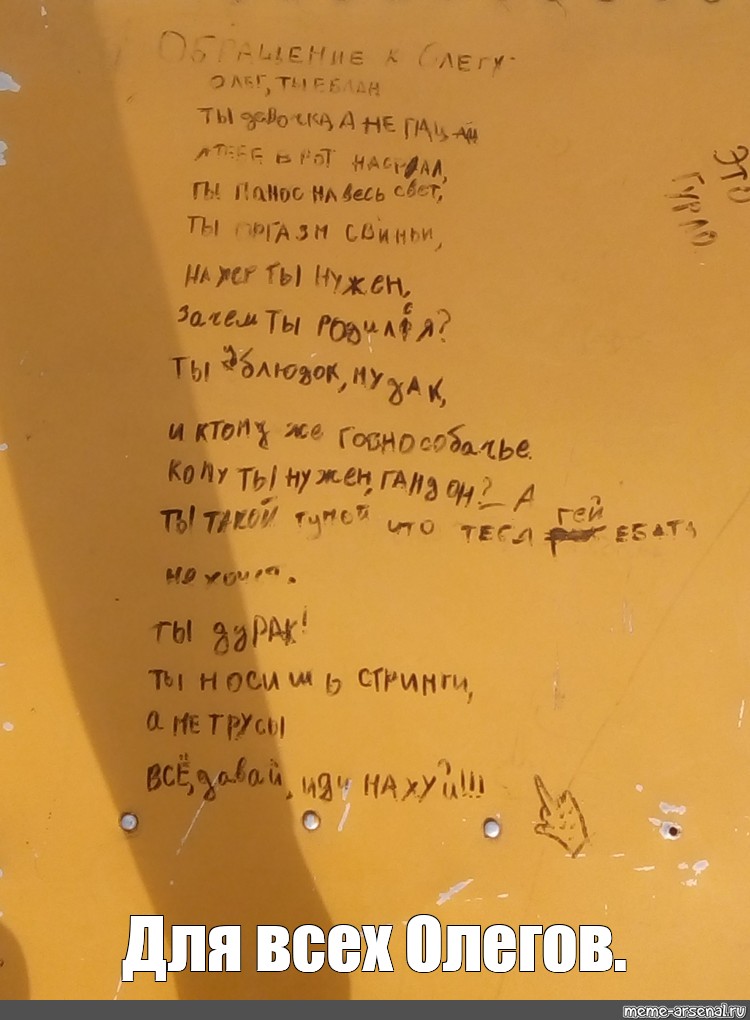 ОБРАЩЕНИЕ К ОЛЕГУ
ОЛЕГ, ТЫ ЕБЛАН
ТЫ девочка, А НЕ ПАЦАН
А ТЕБЕ В РОТ НАСРАЛ,
ТЫ ПАНОС НА весь свет,
ТЫ ОРГАЗМ СВИНЬИ,
НА ХЕР ТЫ НУЖЕН,
Зачем ТЫ РОДИЛСЯ?
ТЫ УБЛЮДОК, МУДАК,
и к тому же говно собачье.
КОМУ ТЫ НУЖЕН, ГАНДОН? А
ТЫ ТАКОЙ тупой что ТЕБЯ гей ЕБАТЬ
не хочет.
ТЫ ДУРАК!
ТЫ НОСИШЬ СТРИНГИ,
А НЕ ТРУСЫ
ВСЁ, давай, иди НАХУЙ!!!
ЭТО
ГУРЛО
Для всех Олегов.
meme-arsenal.ru